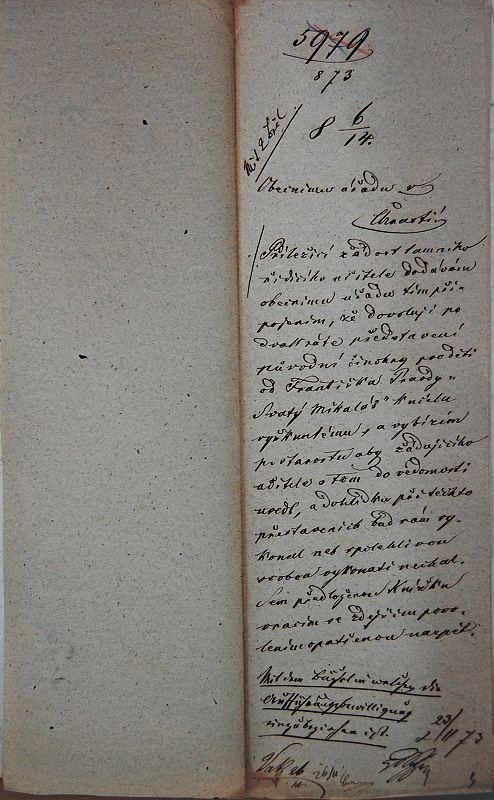 5979
873
8 6/14.
Obecnímu úřadu v
Příležící žádost tamního
řídícího učitele dodávám
obecnímu úřadu s tím při-
pojením, že dovoluji po
dvakráte představení
původní činohry pro děti
od Františka Pravdy
"Svatý Mikuláš" k účelu
a vybízím
p. starostu aby žádajícího
učitele o tom do vědomosti
uvedl, a dohlídku při těchto
představeních buď sám vy-
konal neb spolehlivou
osobou vykonati nechal.
Sem předloženou knížku
vracím se zdejším povo-
lením opatřenou nazpět.
Mit dem Büchel in welches die
Aufführungsbewilligung
einzubeziehen ist.
23/11 73